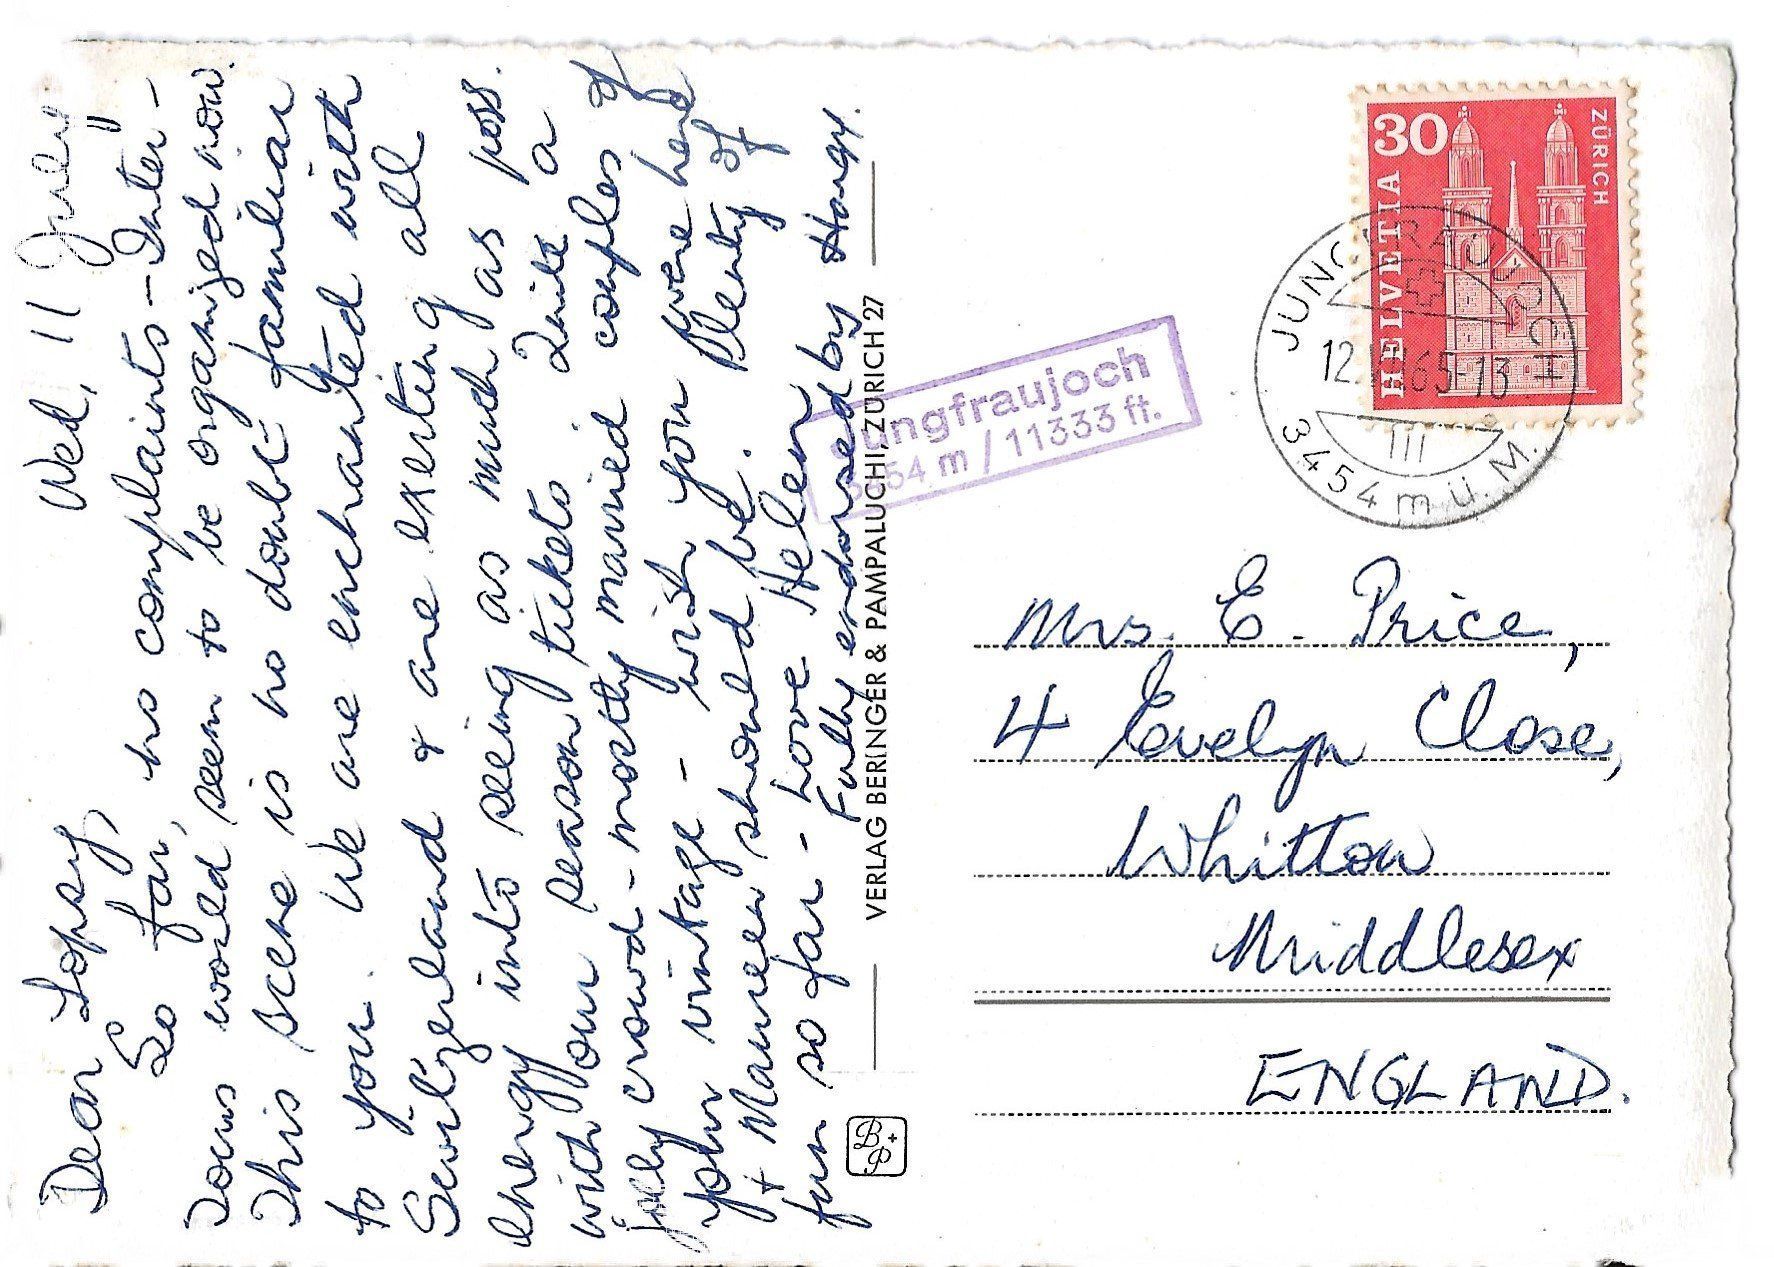 Wed, 11 July
Dear Topsy
So far, no complaints - Inter-
Tours would seem to be organized now.
This scene is no doubt familiar
to you. We are enchanted with
Switzerland & are exerting all
energy into seeing as much as poss.
with our season tickets. Quite a
jolly crowd - mostly married couples of
your vintage - wish you were here
+ Maureen should be. Plenty of
fun so far - Love Helen
Fully endorsed by Hangy.
VERLAG BERINGER & PAMPALUCHI, ZÜRICH 27
B+P
Jungfraujoch
3454 m / 11333 ft.
30
HELVETIA
ZÜRICH
JUNGFRAUJOCH
12.VII.65-13
3454 m ü. M.
Mrs. E. Price,
4 Evelyn Close,
Whitton
Middlesex
ENGLAND.